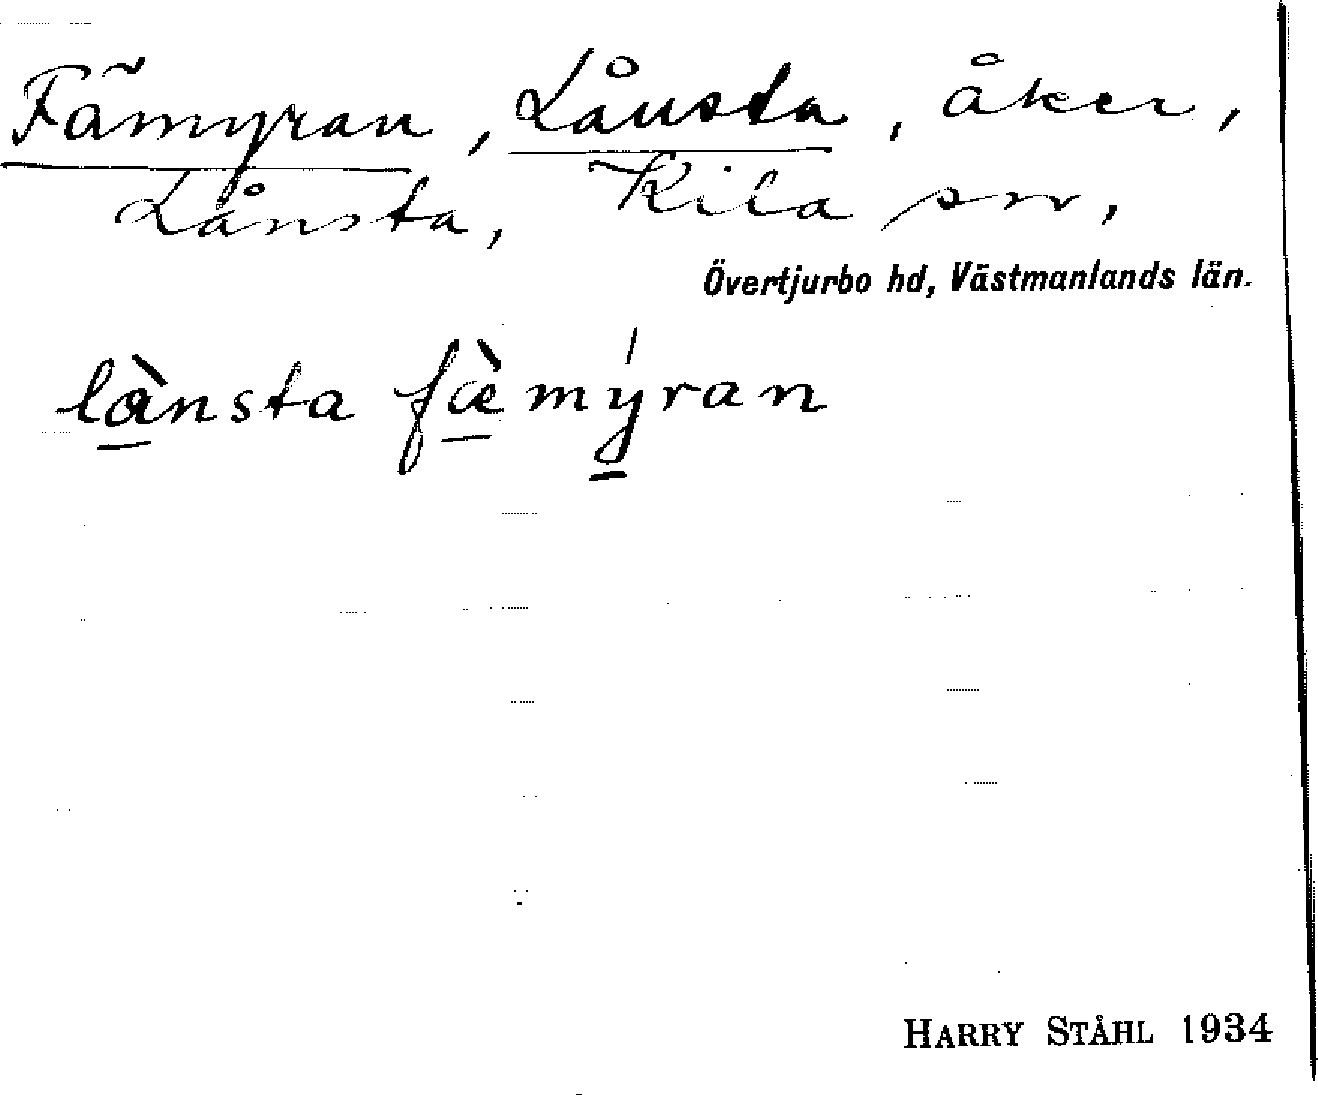 Fämyran, Lånsta, åker,
Lånsta, Kila sn,
Övertjurbo hd, Västmanlands län.
lànsta fæ̀mýran
HARRY STÅHL 1934